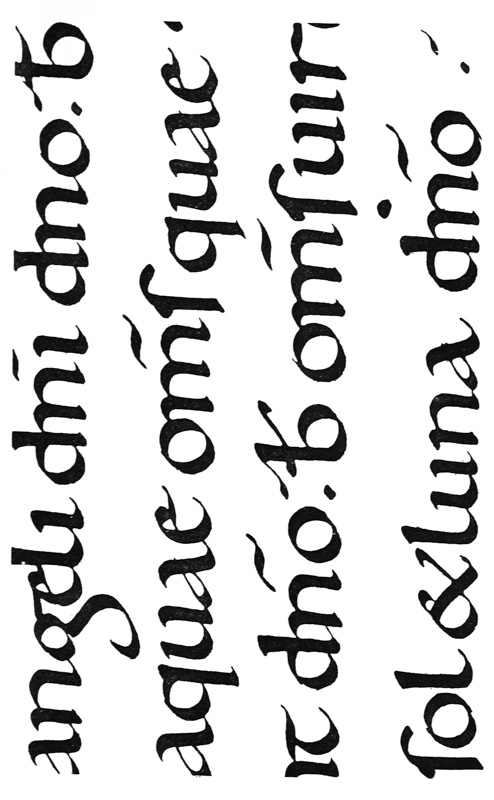 angeli dnī dno: ƀ
aquae om̄ſ quae
rc dn̄o: ƀ om̄ſ uir
ſol & luna dn̄o